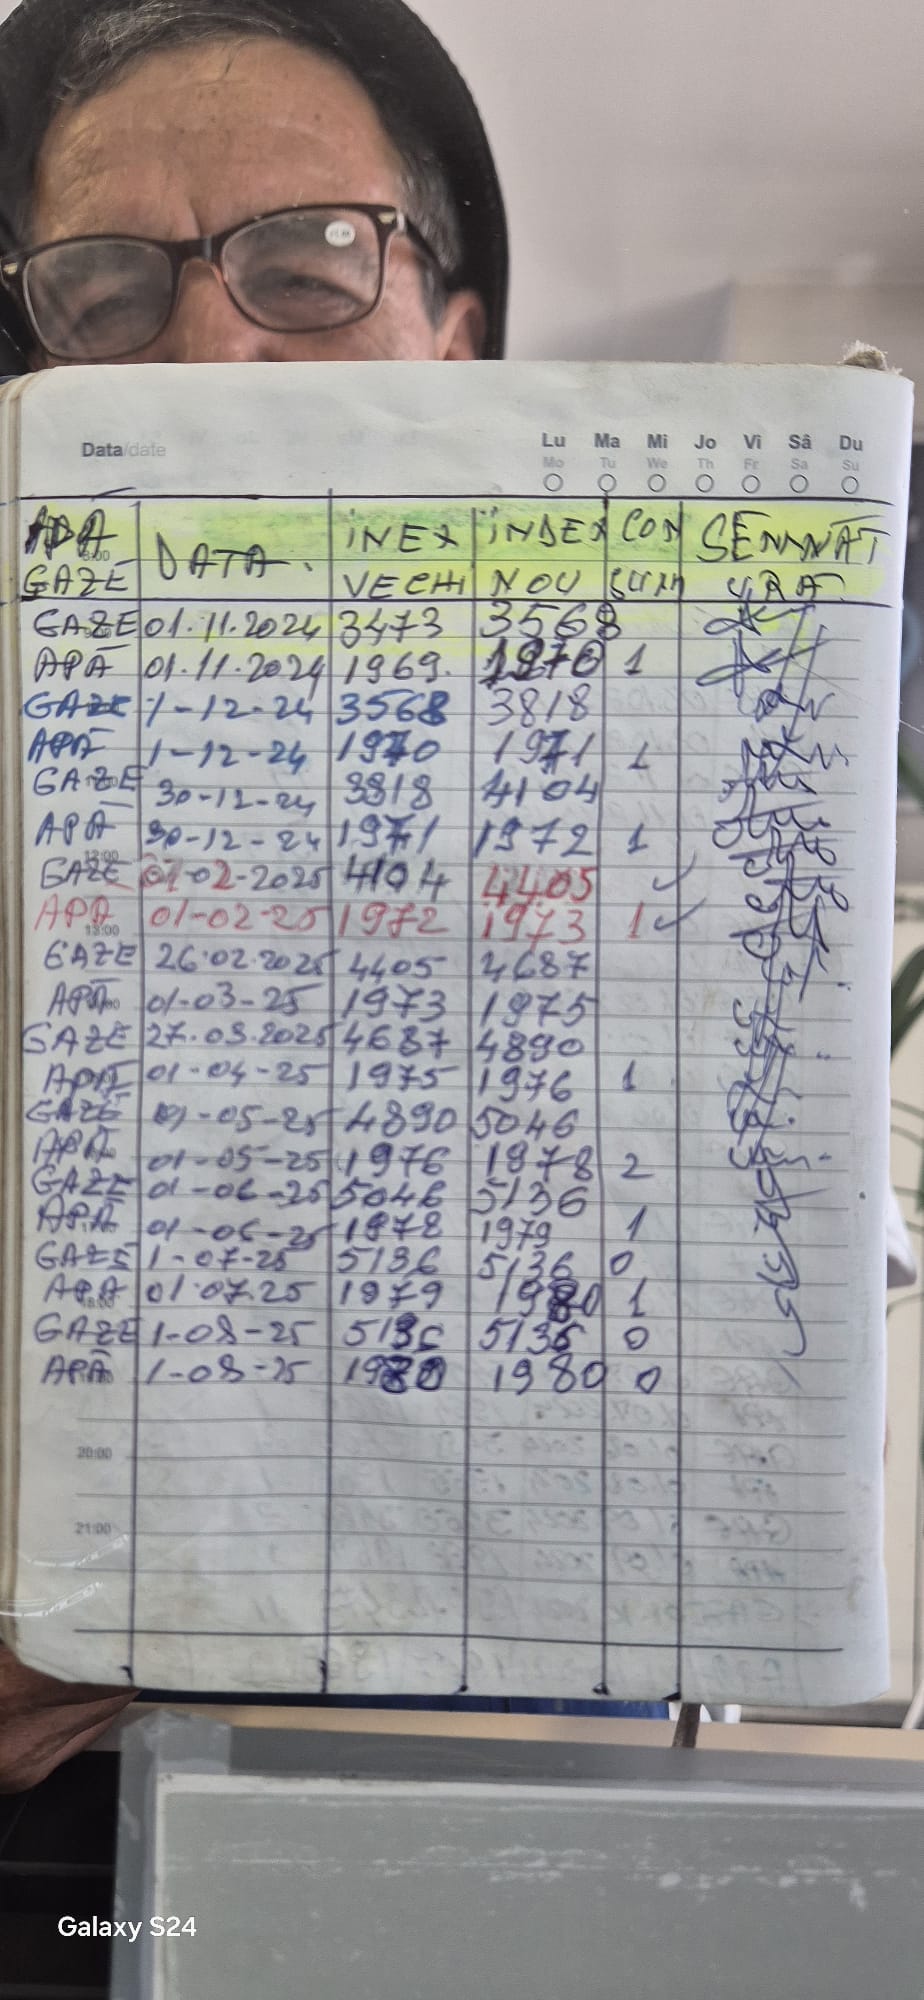 Data/date Lu Ma Mi Jo Vi Sâ Du
Mo Tu We Th Fr Sa Su
APA DATA. INEX INDEX CON SEMNAT
GAZE VECHI NOU SUM URA
GAZE 01.11.2024 3473 3568
APĀ 01.11.2024 1969. 1970 1
GAZE 1-12-24 3568 3818
APĀ 1-12-24 1970 1971 1
GAZE 30-12-24 3818 4104
APĀ 30-12-24 1971 1972 1
12:00
GAZE 01-02-2025 4104 4405 ✓
APĀ 01-02-25 1972 1973 1 ✓
13:00
GAZE 26.02.2025 4405 4687
APĀ 01-03-25 1973 1975
GAZE 27.03.2025 4687 4890
APĀ 01-04-25 1975 1976 1
GAZE 01-05-25 4890 5046
APĀ 01-05-25 1976 1978 2
GAZE 01-06-25 5046 5136
APĀ 01-06-25 1978 1979 1
GAZE 1-07-25 5136 5136 0
APA 01.07.25 1979 1980 1
18:00
GAZE 1-08-25 5136 5136 0
APĀ 1-08-25 1980 1980 0
20:00
21:00
Galaxy S24